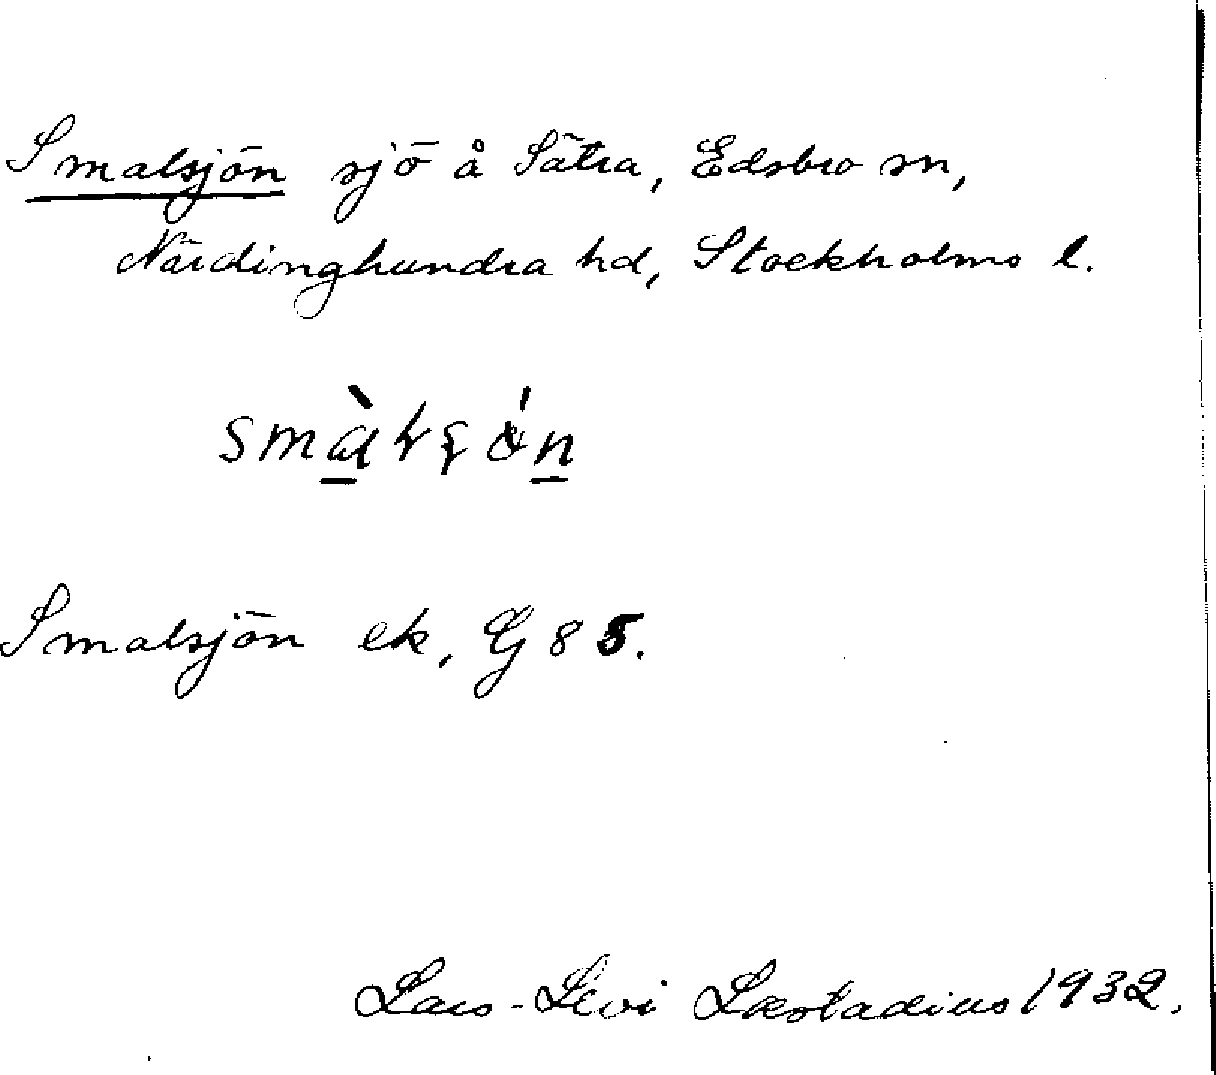 Smalsjön sjö å Sätra, Edsbro sn,
Närdinghundra hd, Stockholms l.
Smalsjön ek, G 85.
Lars-Levi Læstadius 1932.